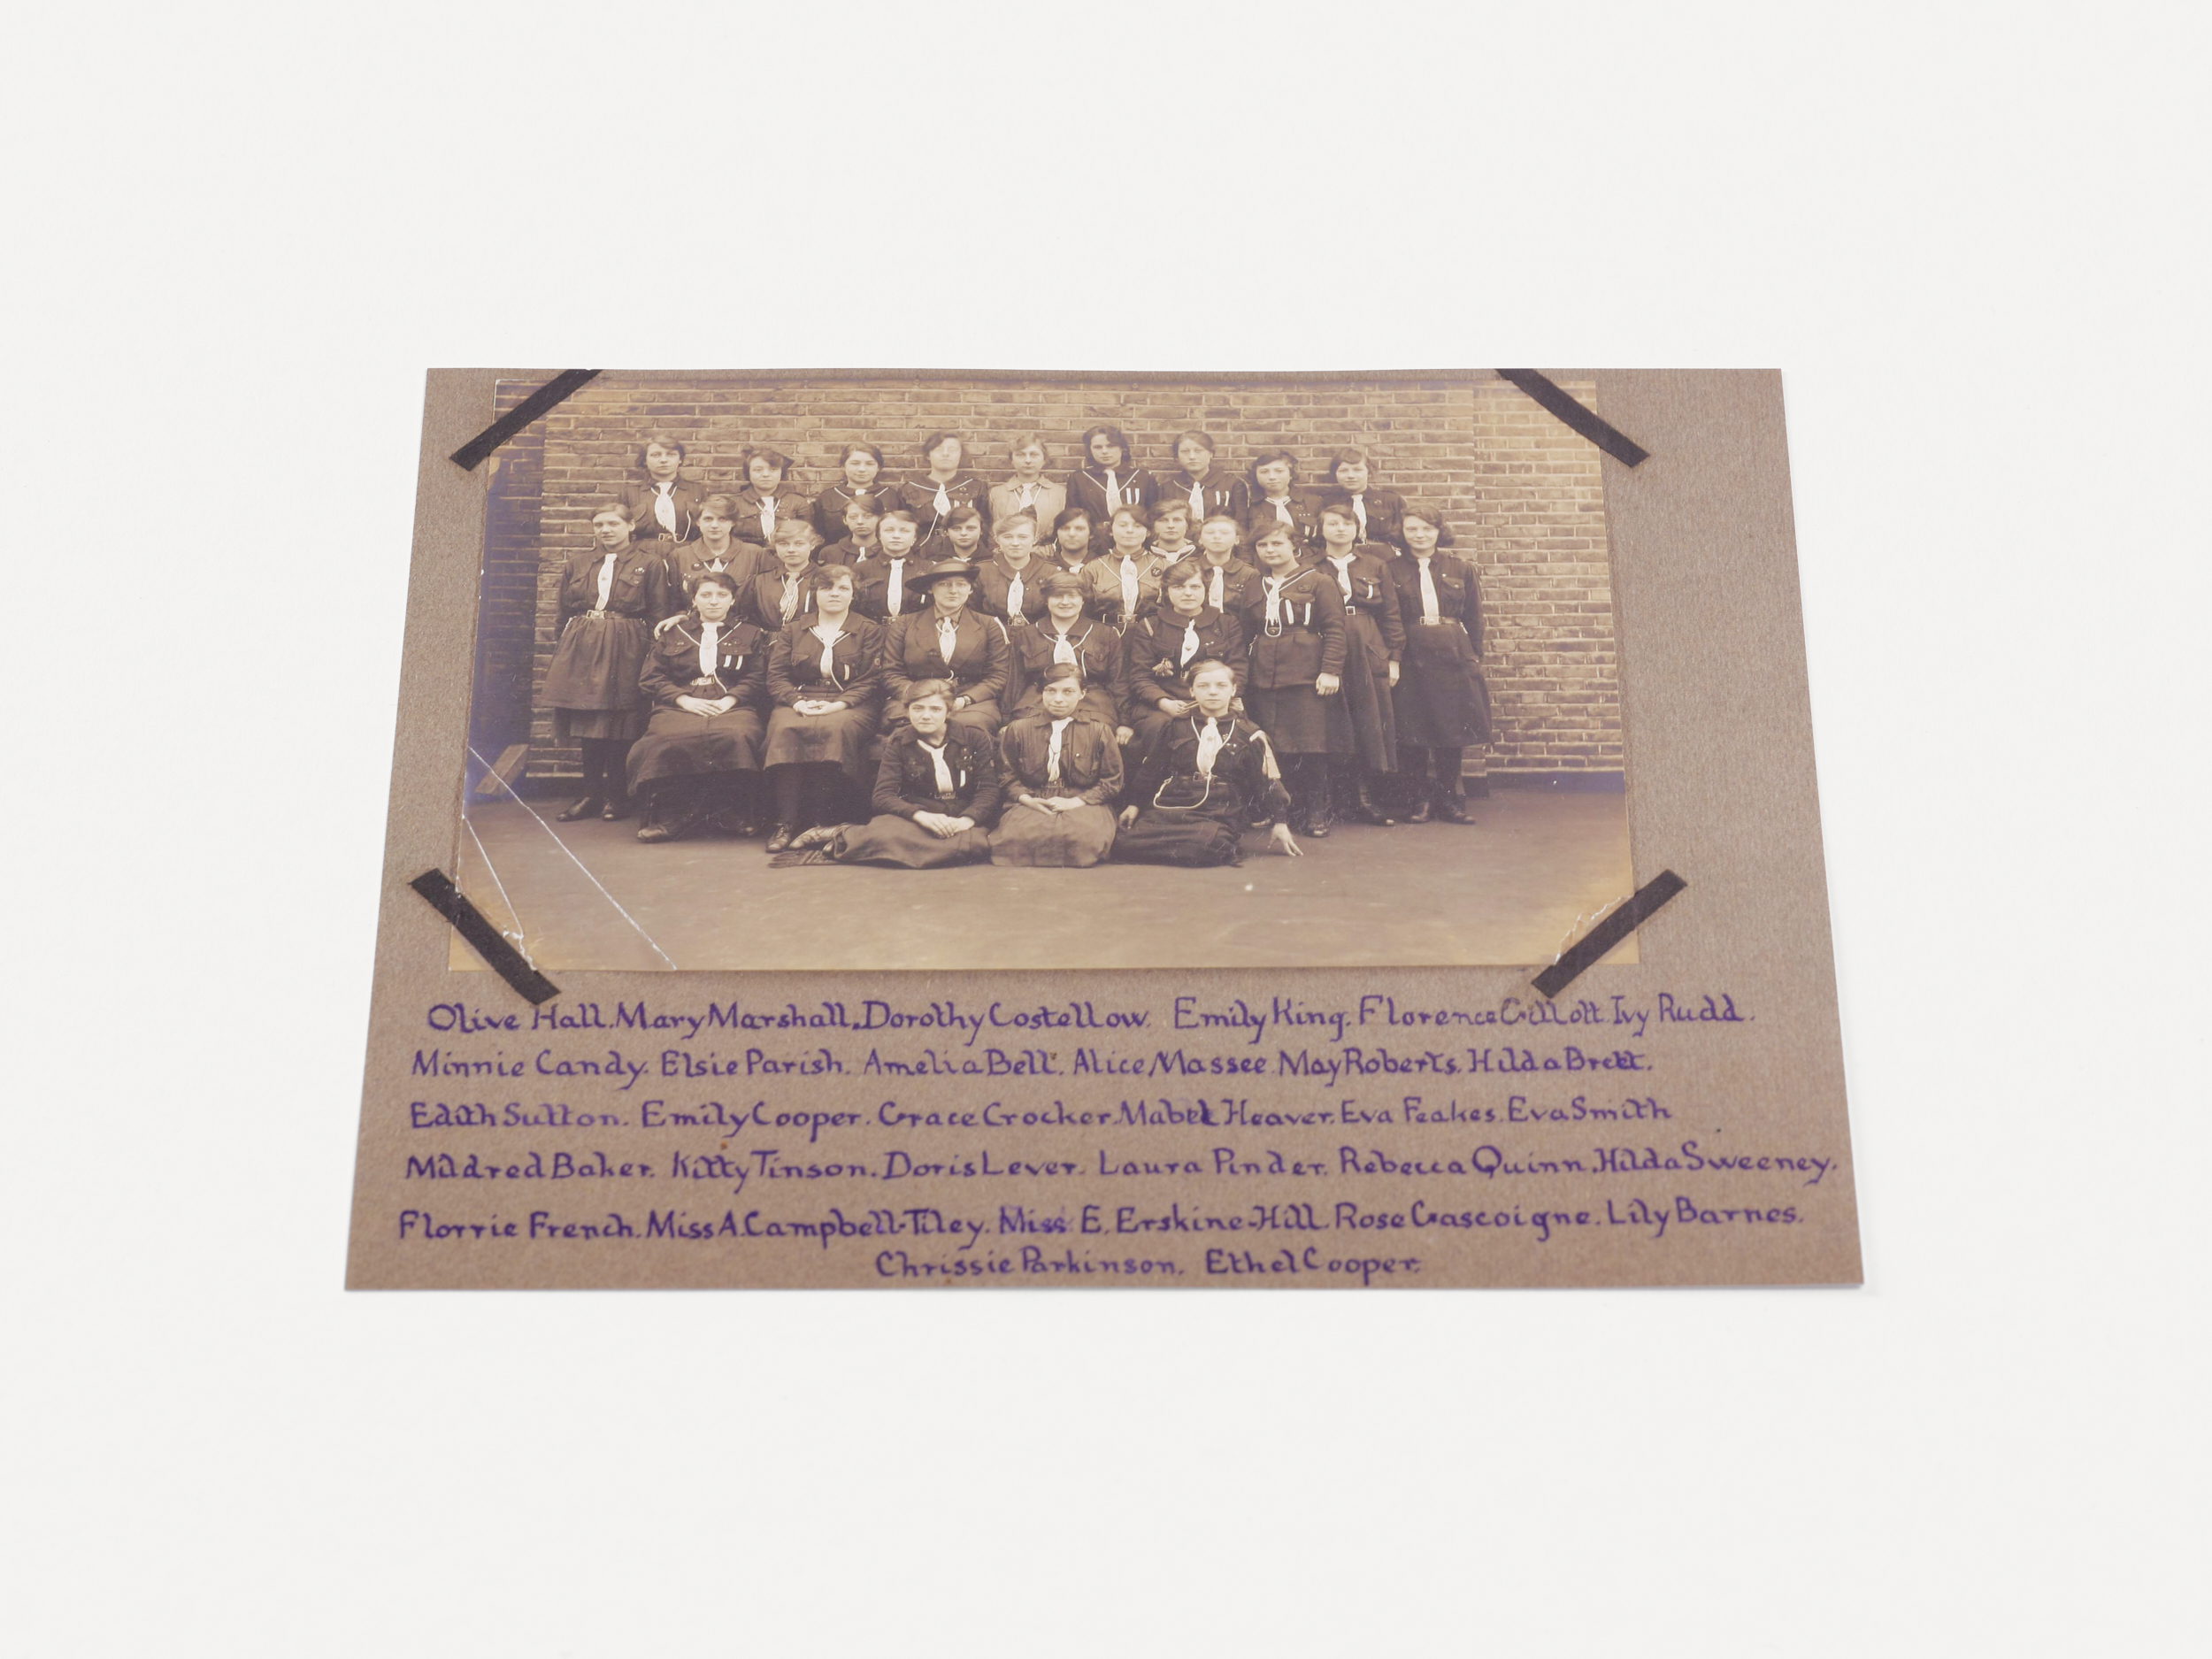 Olive Hall. Mary Marshall. Dorothy Costellow. Emily King. Florence Gillott. Ivy Rudd.
Minnie Candy. Elsie Parish. Amelia Bell. Alice Massee. May Roberts. Hilda Brett.
Edith Sutton. Emily Cooper. Grace Crocker. Mabel Heaver. Eva Feakes. Eva Smith
Mildred Baker. Kitty Tinson. Doris Lever. Laura Pinder. Rebecca Quinn. Hilda Sweeney.
Florrie French. Miss A. Campbell-Tiley. Miss E. Erskine-Hill. Rose Gascoigne. Lily Barnes.
Chrissie Parkinson. Ethel Cooper.